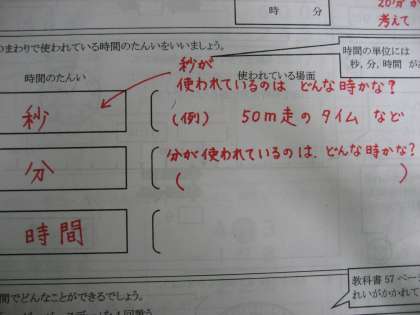 時 分
20分が
考えて
のまわりで使われている時間のたんいをいいましょう。
時間の単位には
秒，分，時間 が
時間のたんい
使われている場面
秒が
使われているのは どんな時かな？
秒
(例) 50m走のタイム など
分が使われているのは、どんな時かな？
分
( )
時間
教科書57ページ
れいがかかれて
間でどんなことができるでしょう。